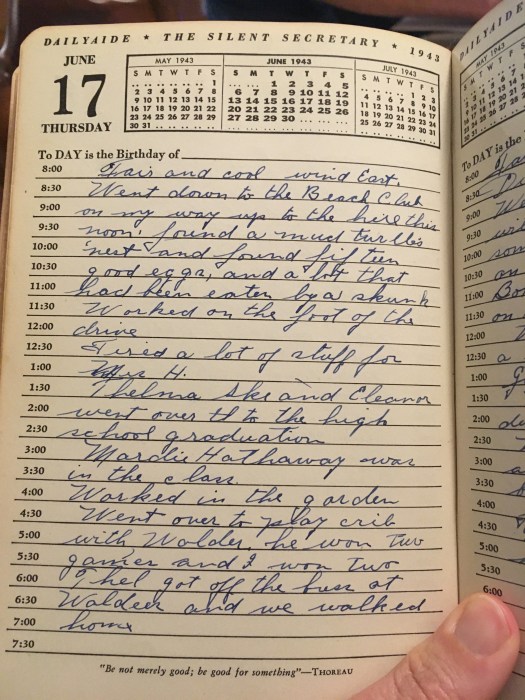 DAILYAIDE ★ THE SILENT SECRETARY ★ 1943
JUNE
17
THURSDAY
MAY 1943
S M T W T F S
. . . . . . 1
2 3 4 5 6 7 8
9 10 11 12 13 14 15
16 17 18 19 20 21 22
23 24 25 26 27 28 29
30 31 . . . . .
JUNE 1943
S M T W T F S
. . 1 2 3 4 5
6 7 8 9 10 11 12
13 14 15 16 17 18 19
20 21 22 23 24 25 26
27 28 29 30 . . .
JULY 1943
S M T W T F S
. . . . 1 2 3
4 5 6 7 8 9 10
11 12 13 14 15 16 17
18 19 20 21 22 23 24
25 26 27 28 29 30 31
To DAY is the Birthday of
8:00 Fair and cool wind East.
8:30 Went down to the Beach Club
9:00 on my way up to the hill this
9:30 noon. found a mud turtles
10:00 nest and found fifteen
10:30 good eggs, and a lot that
11:00 had been eaten by a skunk
11:30 Worked on the foot of the
12:00 drive
12:30 Fired a lot of stuff for
1:00 H.
1:30 Thelma Ske and Eleanor
2:00 went over to the high
2:30 school graduation
3:00 Mardie Hathaway was
3:30 in the class.
4:00 Worked in the garden
4:30 Went over to play crib
5:00 with Walder, he won two
5:30 games and I won two
6:00 Thel got off the buss at
6:30 Waldees and we walked
7:00 home
7:30
"Be not merely good; be good for something"—THOREAU
DAILYAIDE
MAY 1943
To DAY is the
8:00
8:30
9:00
9:30
10:00
10:30
11:00
11:30
12:00
12:30
1:00
1:30
2:00
2:30
3:00
3:30
4:00
4:30
5:00
5:30
6:00